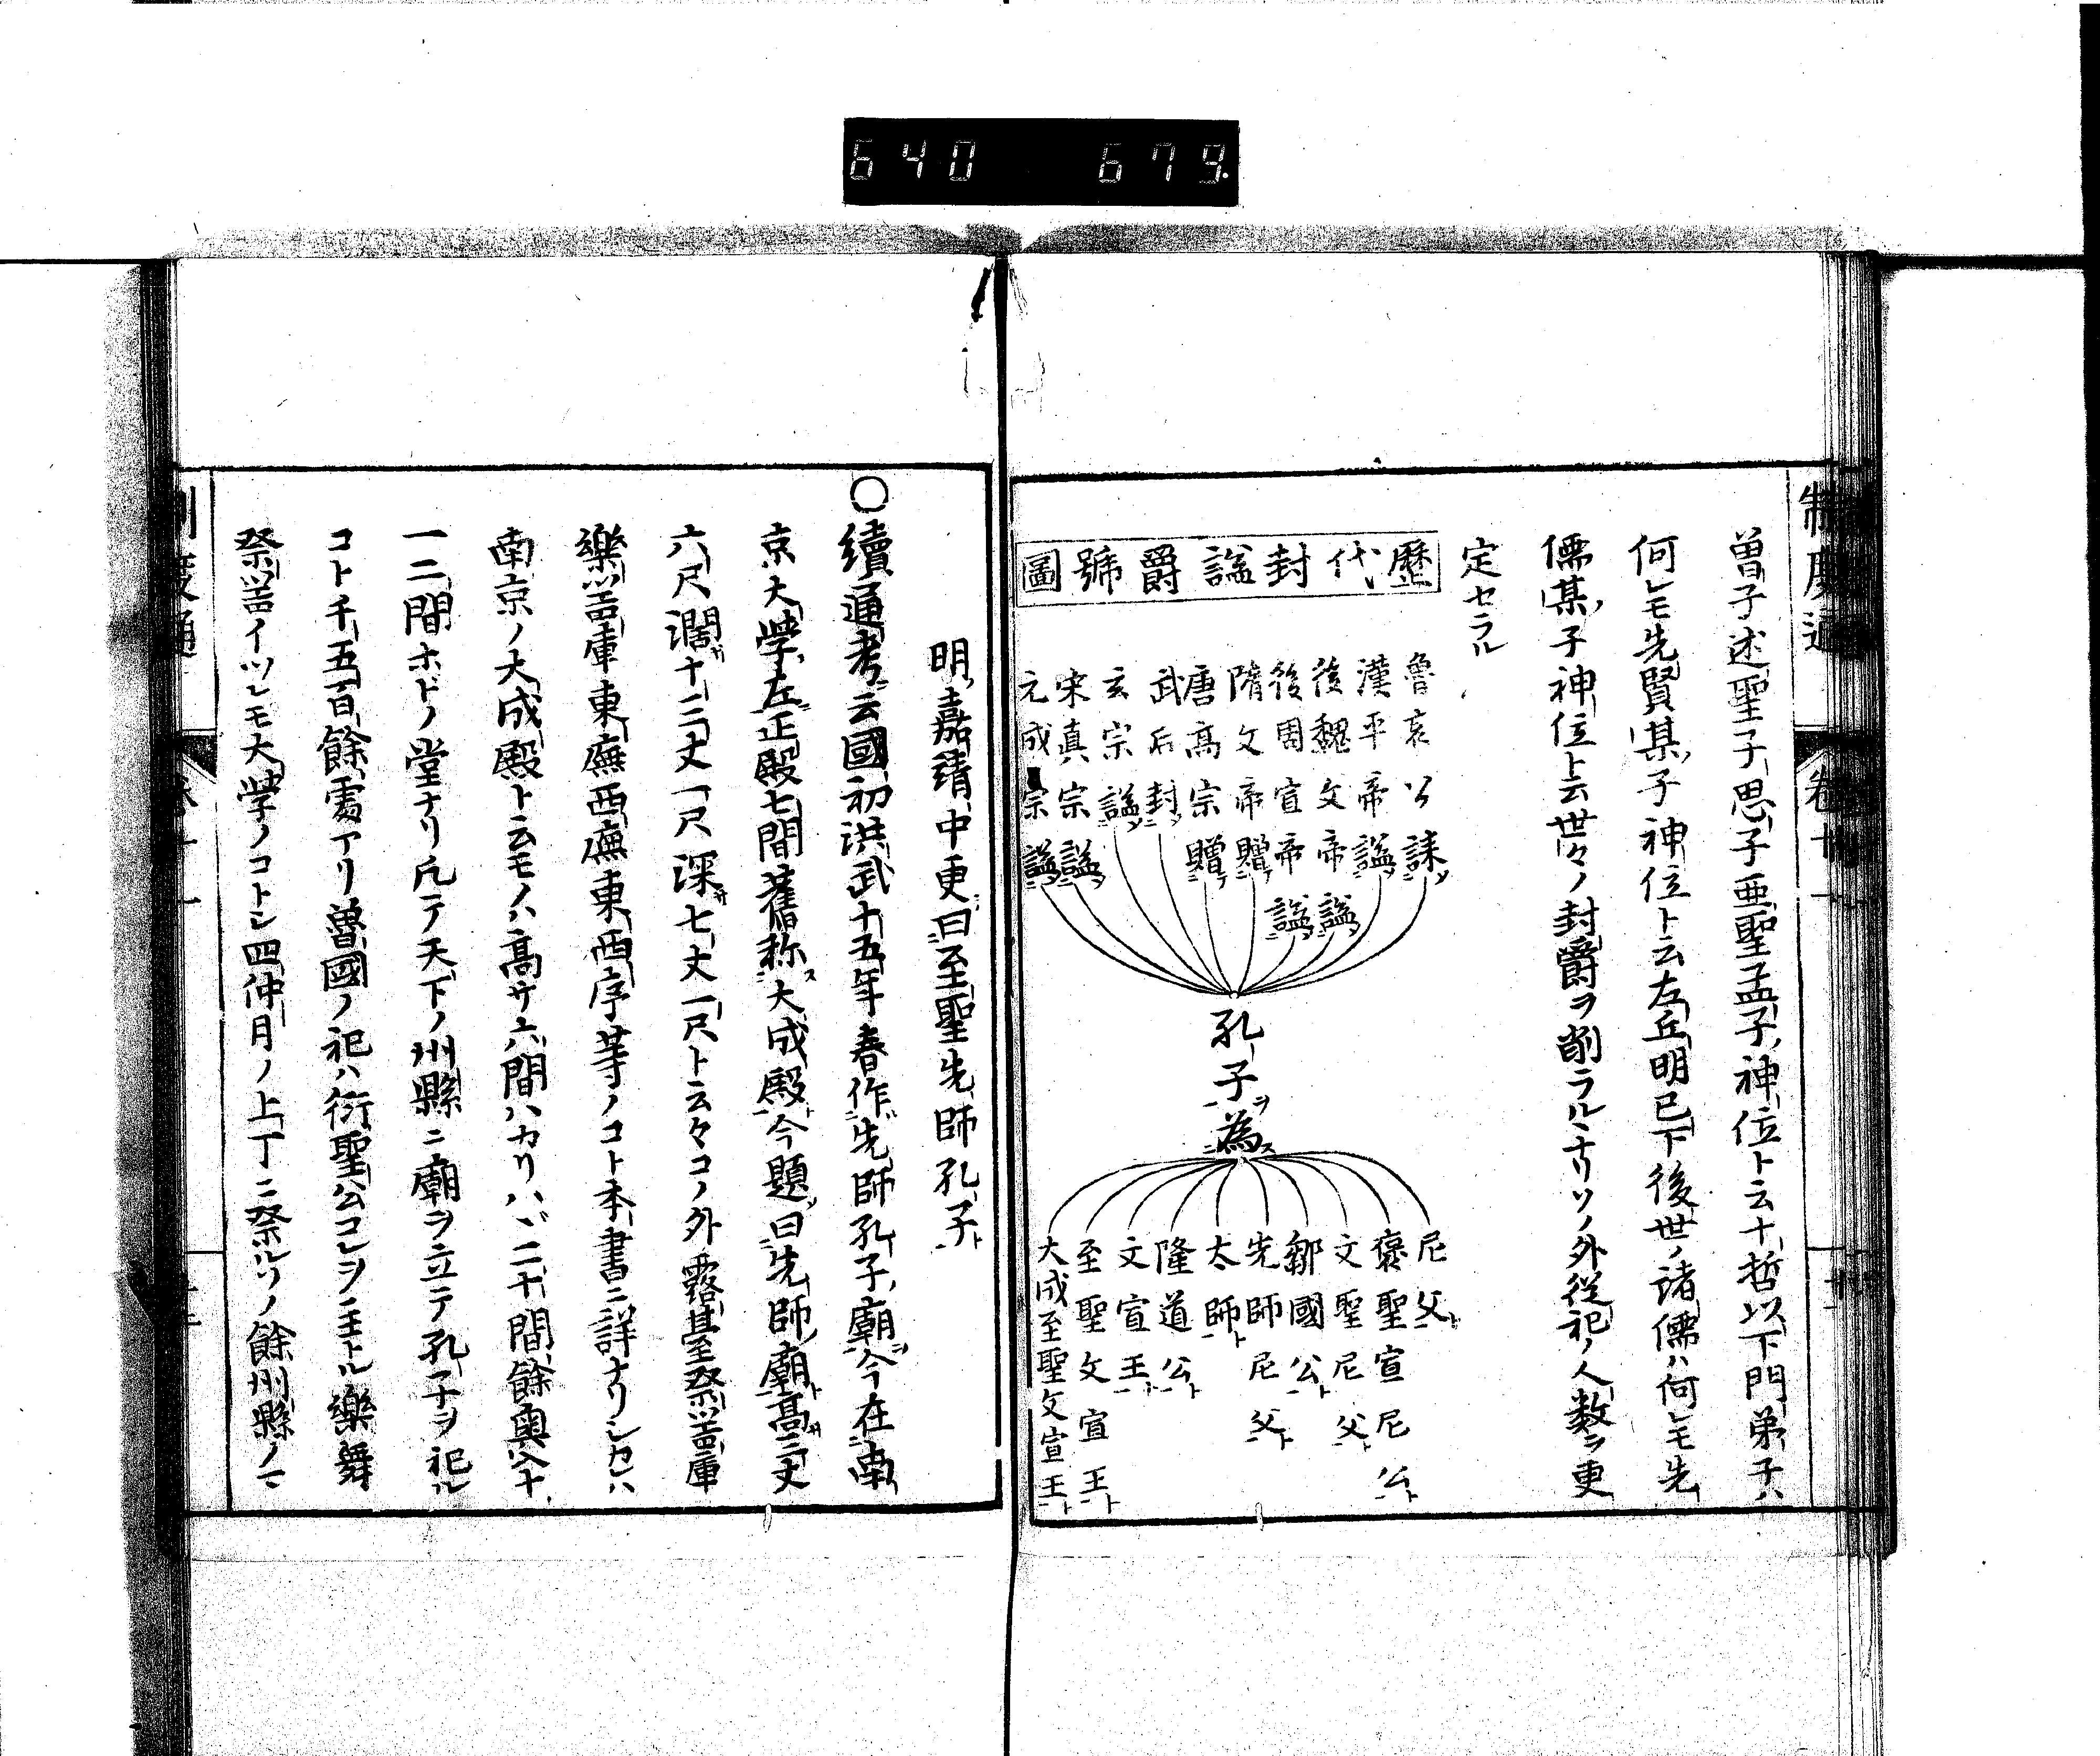 640 679.
制度通 卷十一
曽子述聖子思子亜聖孟子神位ト云十哲以下門弟子ハ
何レモ先賢某子神位ト云左丘明已下後世ノ諸儒ハ何レモ先
儒某子神位ト云世々ノ封爵ヲ削ラルヽナリソノ外従祀ノ人数ヲ更
定セラル
歴代封謚爵號圖
魯哀公誄
漢平帝謚
後魏文帝謚
後周宣帝謚
隋文帝贈
唐髙宗贈
武后封
玄宗謚
宋真宗謚
元成宗謚
孔子ヲ為ス
尼父ト
褒聖宣尼公ト
文聖尼父ト
鄒國公ト
先師尼父ト
太師ト
隆道公ト
文宣王ト
至聖文宣王ト
大成至聖文宣王ト
明嘉靖中更曰至聖先師孔子ト
○續通考云國初洪武十五年春作先師孔子廟今在南
京大學左正殿七間舊称ス大成殿ト今題曰先師廟ト髙サ三丈
六尺濶サ十三丈一尺深サ七丈一尺ト云々コノ外露基至祭噐庫
樂噐庫東廡西廡東西序等ノコト本書ニ詳ナリシカレハ
南京ノ大成殿ト云モノハ髙サ六間ハカリハヾ二十間餘奥八十
一二間ホドノ堂ナリ凡テ天下ノ州縣ニ廟ヲ立テ孔子ヲ祀ル
コト千五百餘處アリ魯國ノ祀ハ衍聖公コレヲ主トル樂舞
祭噐イツレモ大學ノコトシ四仲月ノ上丁ニ祭ルソノ餘州縣ノマ
制度通 卷十一